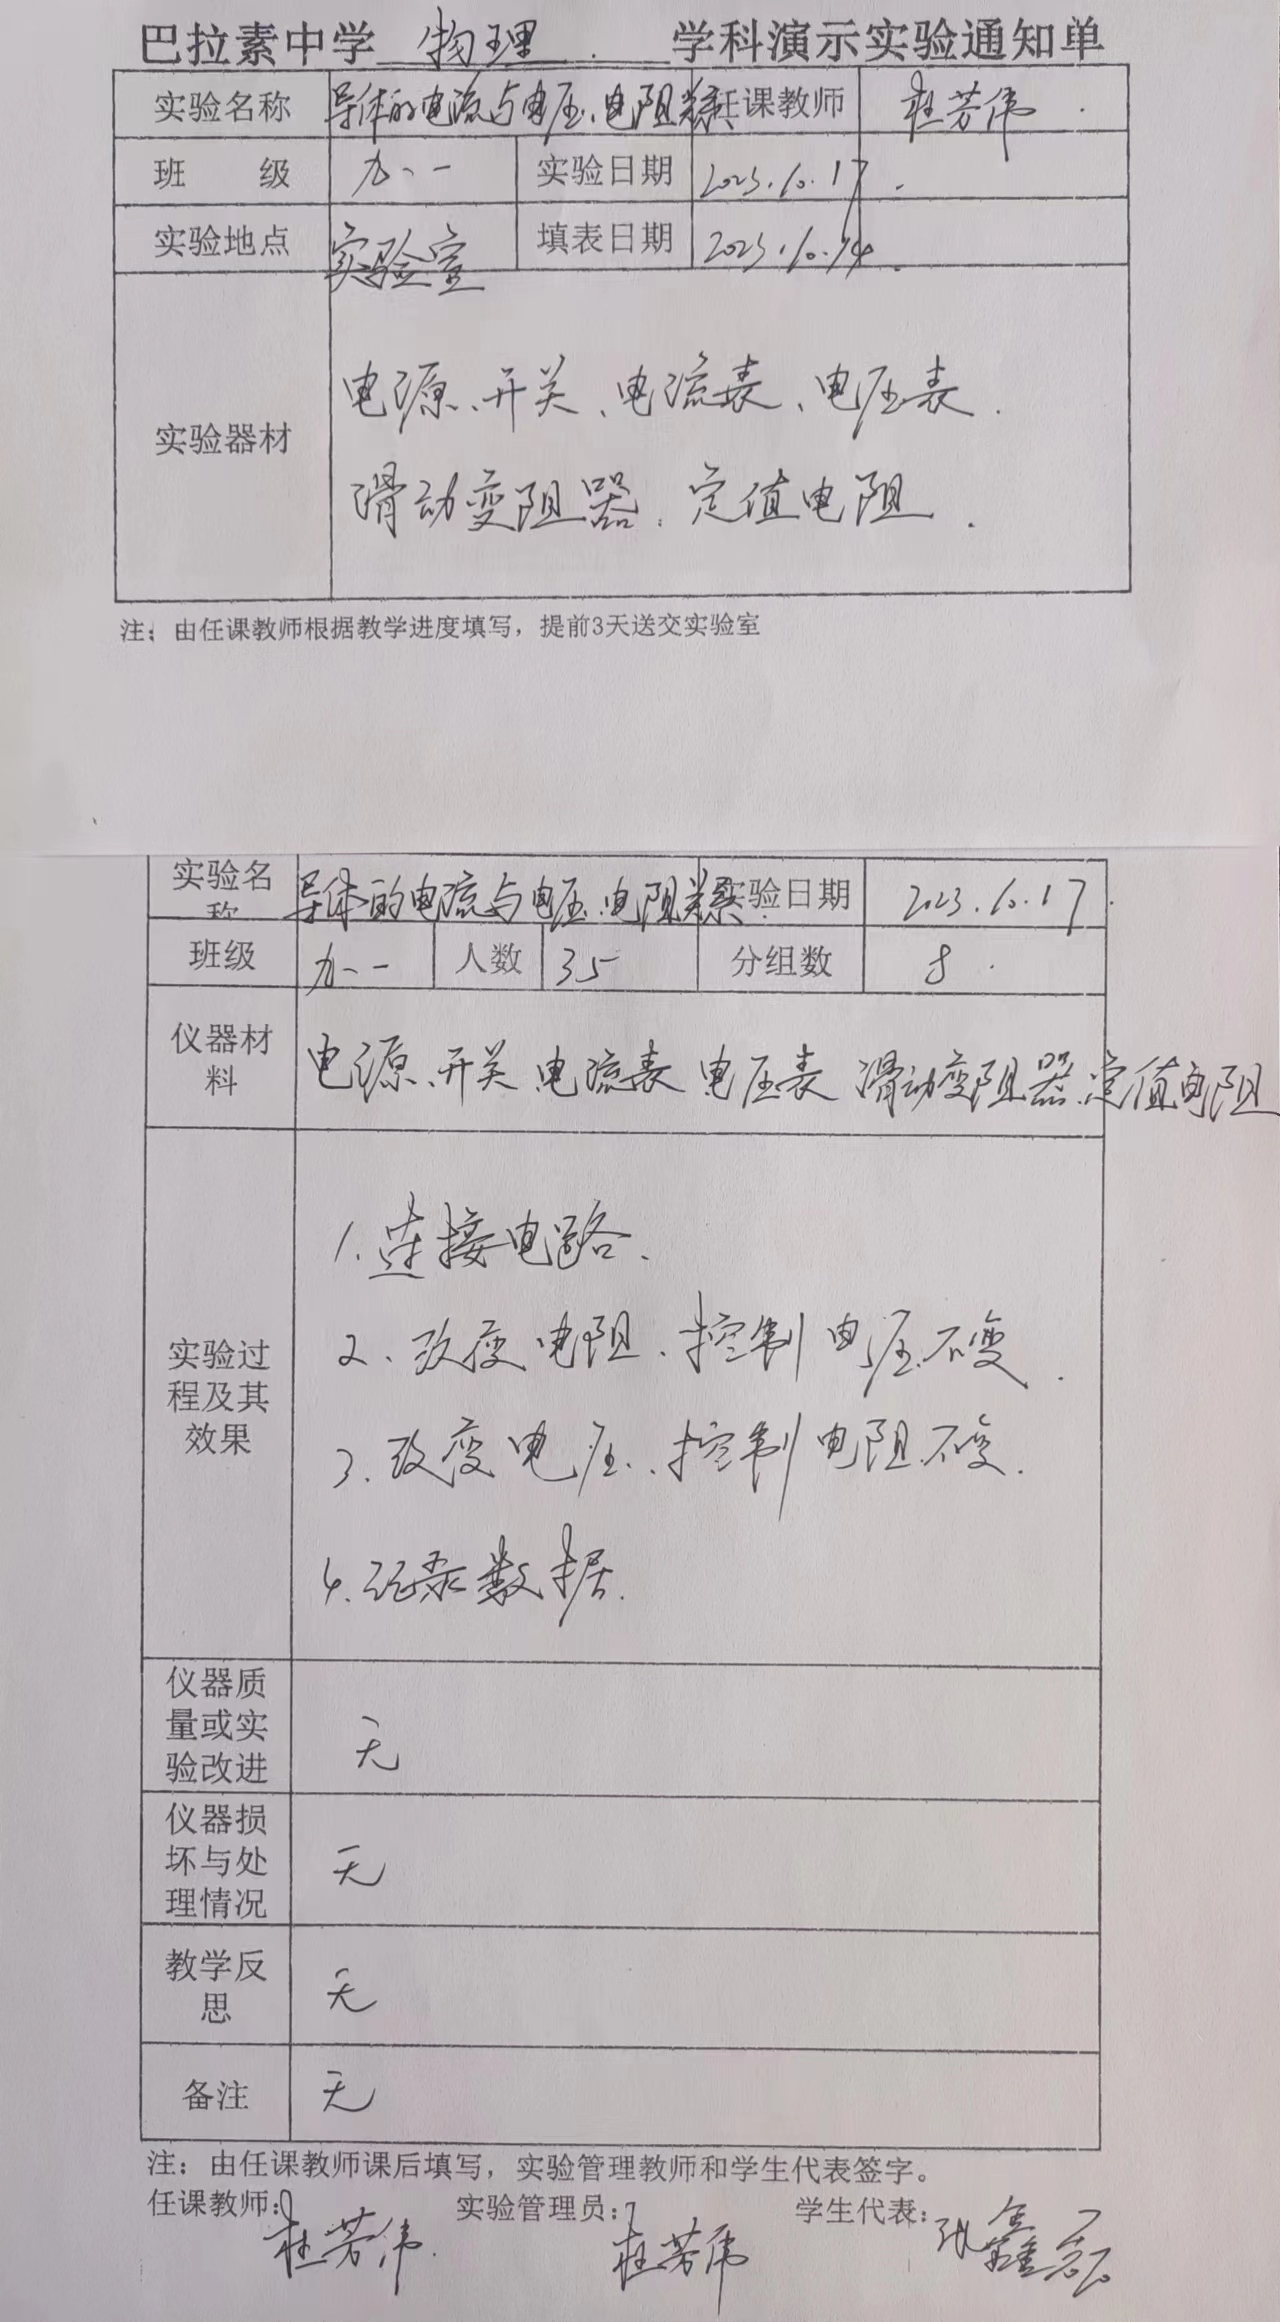 巴拉素中学 物理 学科演示实验通知单
实验名称 导体的电流与电压、电阻关系 任课教师 杜芳伟
班 级 九、一 实验日期 2023.10.17
实验地点 实验室 填表日期 2023.10.14
实验器材
电源、开关、电流表、电压表.
滑动变阻器、定值电阻.
注:由任课教师根据教学进度填写,提前3天送交实验室
实验名
称
导体的电流与电压、电阻关系 实验日期 2023.10.17.
班级 九、一 人数 35 分组数 8
仪器材
料
电源、开关 电流表 电压表 滑动变阻器、定值电阻
实验过
程及其
效果
1.连接电路.
2、改变电阻、控制电压不变.
3、改变电压、控制电阻不变.
4.记录数据.
仪器质
量或实
验改进
无
仪器损
坏与处
理情况
无
教学反
思
无
备注 无
注:由任课教师课后填写,实验管理教师和学生代表签字。
任课教师:杜芳伟. 实验管理员:杜芳伟 学生代表:张鑫磊